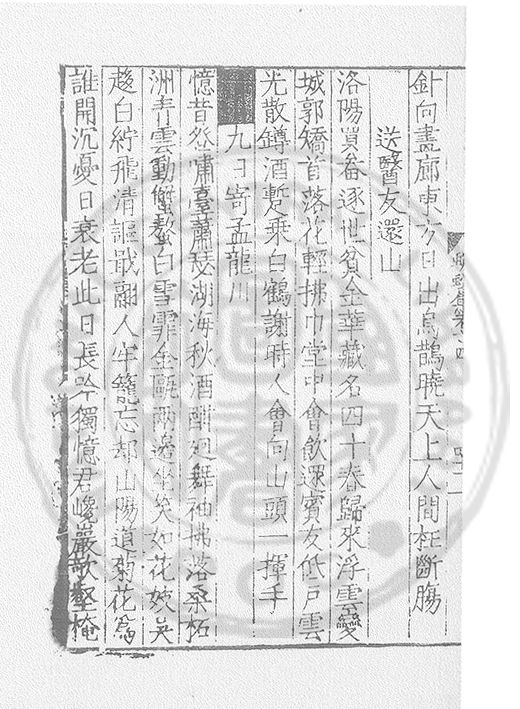 針向畫廊東方日出烏鵲曉天上人間枉斷腸
送醫友還山
洛陽買畚逐世貧金華藏名四十春歸來浮雲變
城郭矯首落花輕拂巾堂中會飲還賓友低戶雲
光散鐏酒蹔乘白鶴謝時人會向山頭一揮手
九日寄孟龍川
憶昔登嘯臺蕭瑟湖海秋酒酣迴舞袖拂落桑柘
洲青雲動蟹螯白雪霏金甌兩邊坐笑如花妓吳
趍白紵飛清謳戢翮人牢籠忘却山陽道菊花爲
誰開沉憂日衰老此日長吟獨憶君巉巖歌壑掩